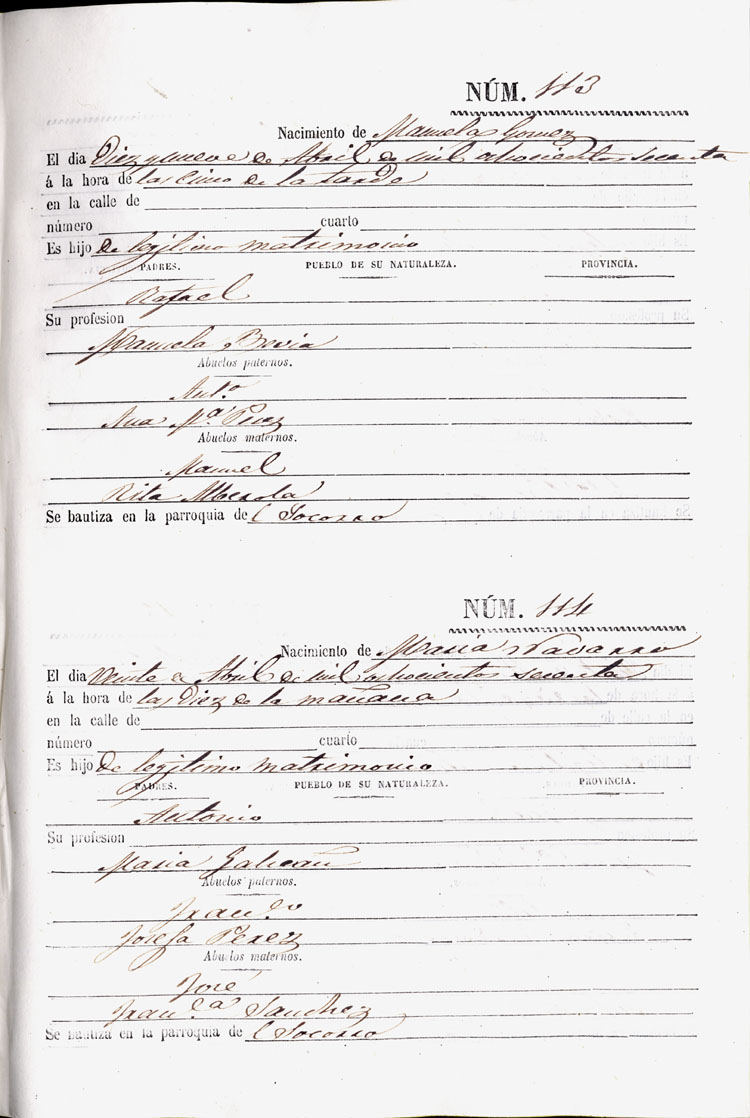 NÚM. 113
Nacimiento de Manuela Gomez
El dia Diez y nueve de Abril de mil ochocientos sesenta
á la hora de las Cinco de la tarde
en la calle de
número cuarto
Es hijo de legitimo matrimonio
PADRES. PUEBLO DE SU NATURALEZA. PROVINCIA.
Rafael
Su profesion
Manuela Brevia
Abuelos paternos.
Ant.º
Ana M.ª Perez
Abuelos maternos.
Manuel
Rita Alberola
Se bautiza en la parroquia de l Socorro
NÚM. 114
Nacimiento de Maria Navarro
El dia veinte de Abril de mil ochocientos sesenta
á la hora de las Diez de la mañana
en la calle de
número cuarto
Es hijo de legitimo matrimonio
PADRES. PUEBLO DE SU NATURALEZA. PROVINCIA.
Antonio
Su profesion
Maria
Abuelos paternos.
Fran.co
Josefa Perez
Abuelos maternos.
José
Fran.ca Sanchez
Se bautiza en la parroquia de l Socorro